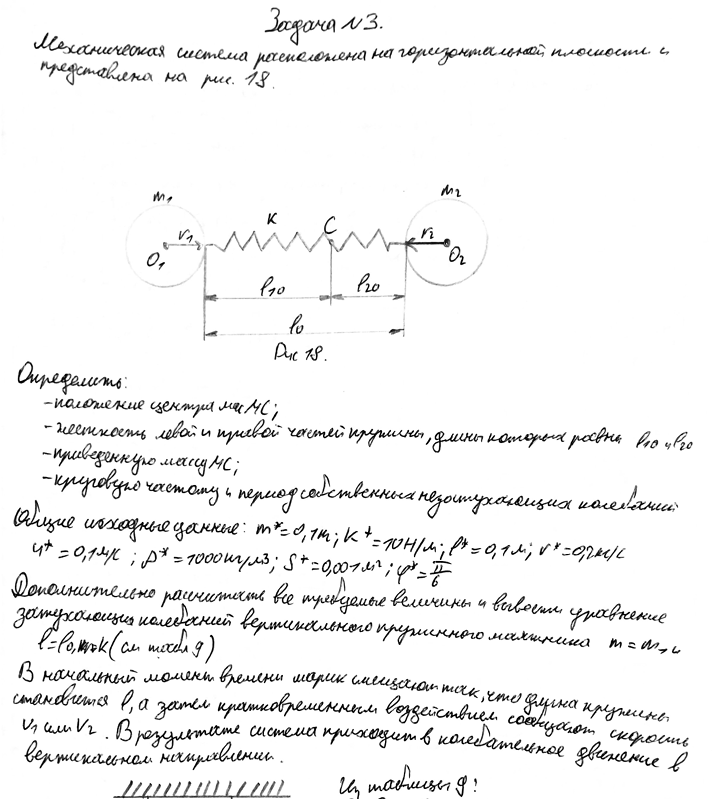 Задача №3.
Механическая система расположена на горизонтальной плоскости и
представлена на рис. 18.
m₁ m₂
K C
v₁ v₂
O₁ O₂
l₁₀ l₂₀
l₀
Рис 18.
Определить:
- положение центра масс МС;
- жесткость левой и правой частей пружины, длины которых равны l₁₀ и l₂₀
- приведенную массу МС;
- круговую частоту и период собственных незатухающих колебаний
Общие исходные данные: m* = 0,1 m; K* = 10 Н/м; l* = 0,1 м; v* = 0,2 м/с
u* = 0,1 м/с; ρ* = 1000 кг/м3; S* = 0,001 м²; φ* = π/6
Дополнительно рассчитать все требуемые величины и вывести уравнение
затухающих колебаний вертикального пружинного маятника m = m₁, и
l = l₀, K (см табл 9)
В начальный момент времени шарик смещают так, что длина пружины
становится l, а затем кратковременным воздействием сообщают скорость
v₁ или v₂. В результате система приходит в колебательное движение в
вертикальном направлении.
Из таблицы 9: